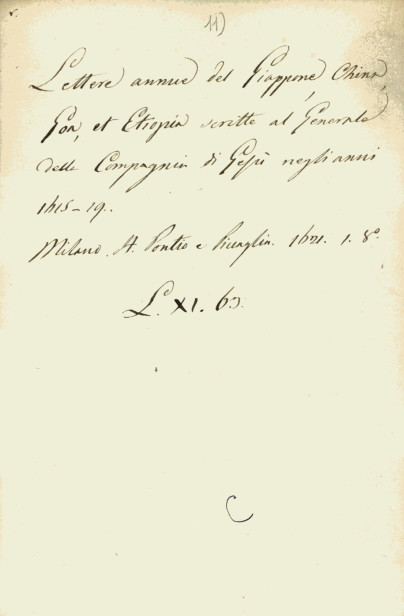 11)
Lettere annue del Giappone, China,
Goa, et Etiopia scritte al Generale
della Compagnia di Gesù negli anni
1615-19.
Milano. H. Pontio e Picaglia. 1621. 1. 8°.
L. XI. 63.
C